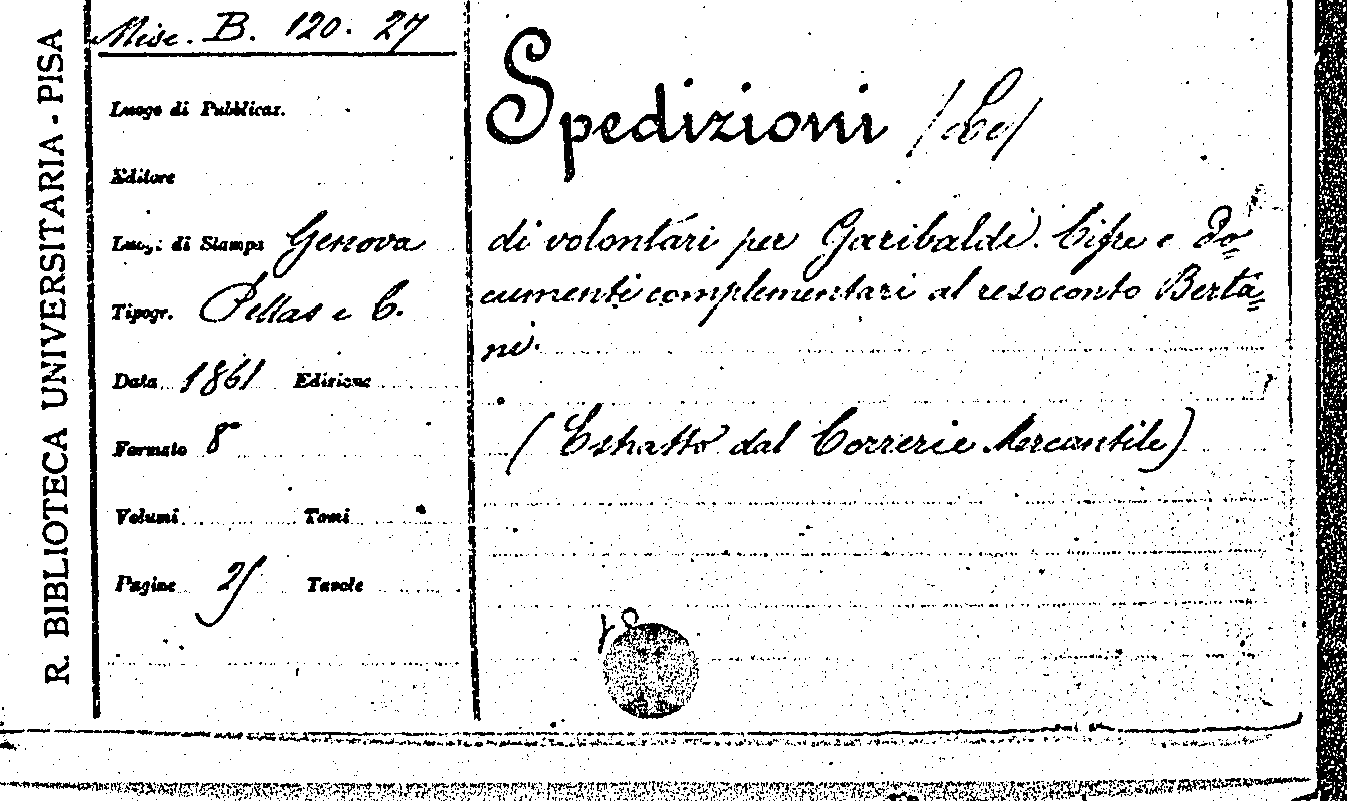 R. BIBLIOTECA UNIVERSITARIA - PISA
Misc. B. 120. 27
Luogo di Pubblicaz.
Editore
Luogo di Stampa Genova
Tipogr. Pellas e C.
Data 1861 Edizione
Formato 8°
Volumi Tomi
Pagine Tavole
Spedizioni /Le/
di volontari per Garibaldi. Cifre e do=
cumenti complementari al resoconto Berta=
ni.
(Estratto dal Correrie Mercantile)